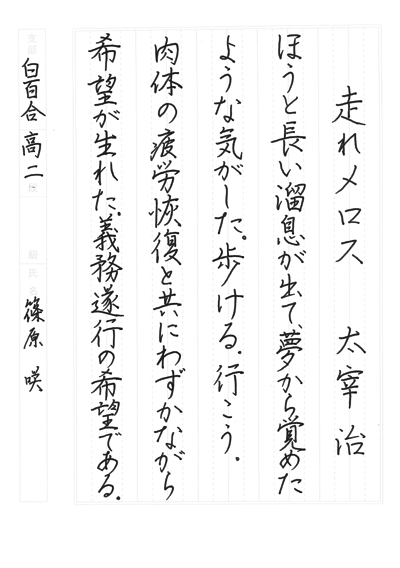 走れメロス 太宰治
ほうと長い溜息が出て、夢から覚めた
ような気がした。歩ける。行こう。
肉体の疲労恢復と共にわずかながら
希望が生れた。義務遂行の希望である。
支部
白百合高二
級
氏名
篠原咲